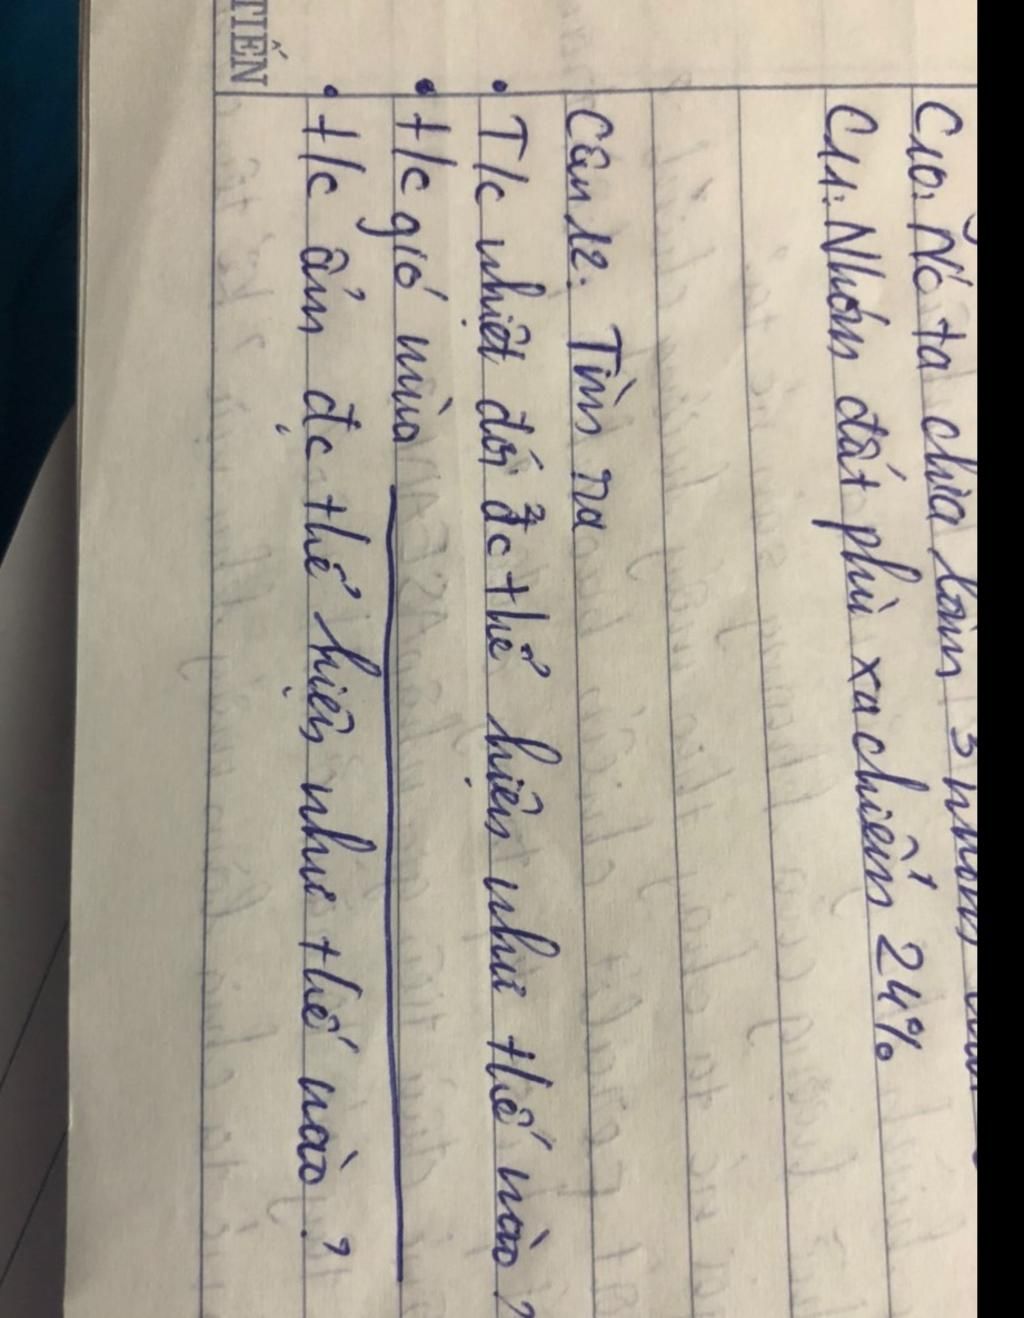 C10: Nó ta chia làm 3 nhóm
C11: Nhóm đất phù xa chiếm 24%
Câu 12: Tìm ra
• T/c nhiệt đới đc thể hiện như thế nào?
• t/c gió mùa
• t/c ẩm đc thể hiện như thế nào?
TIẾN